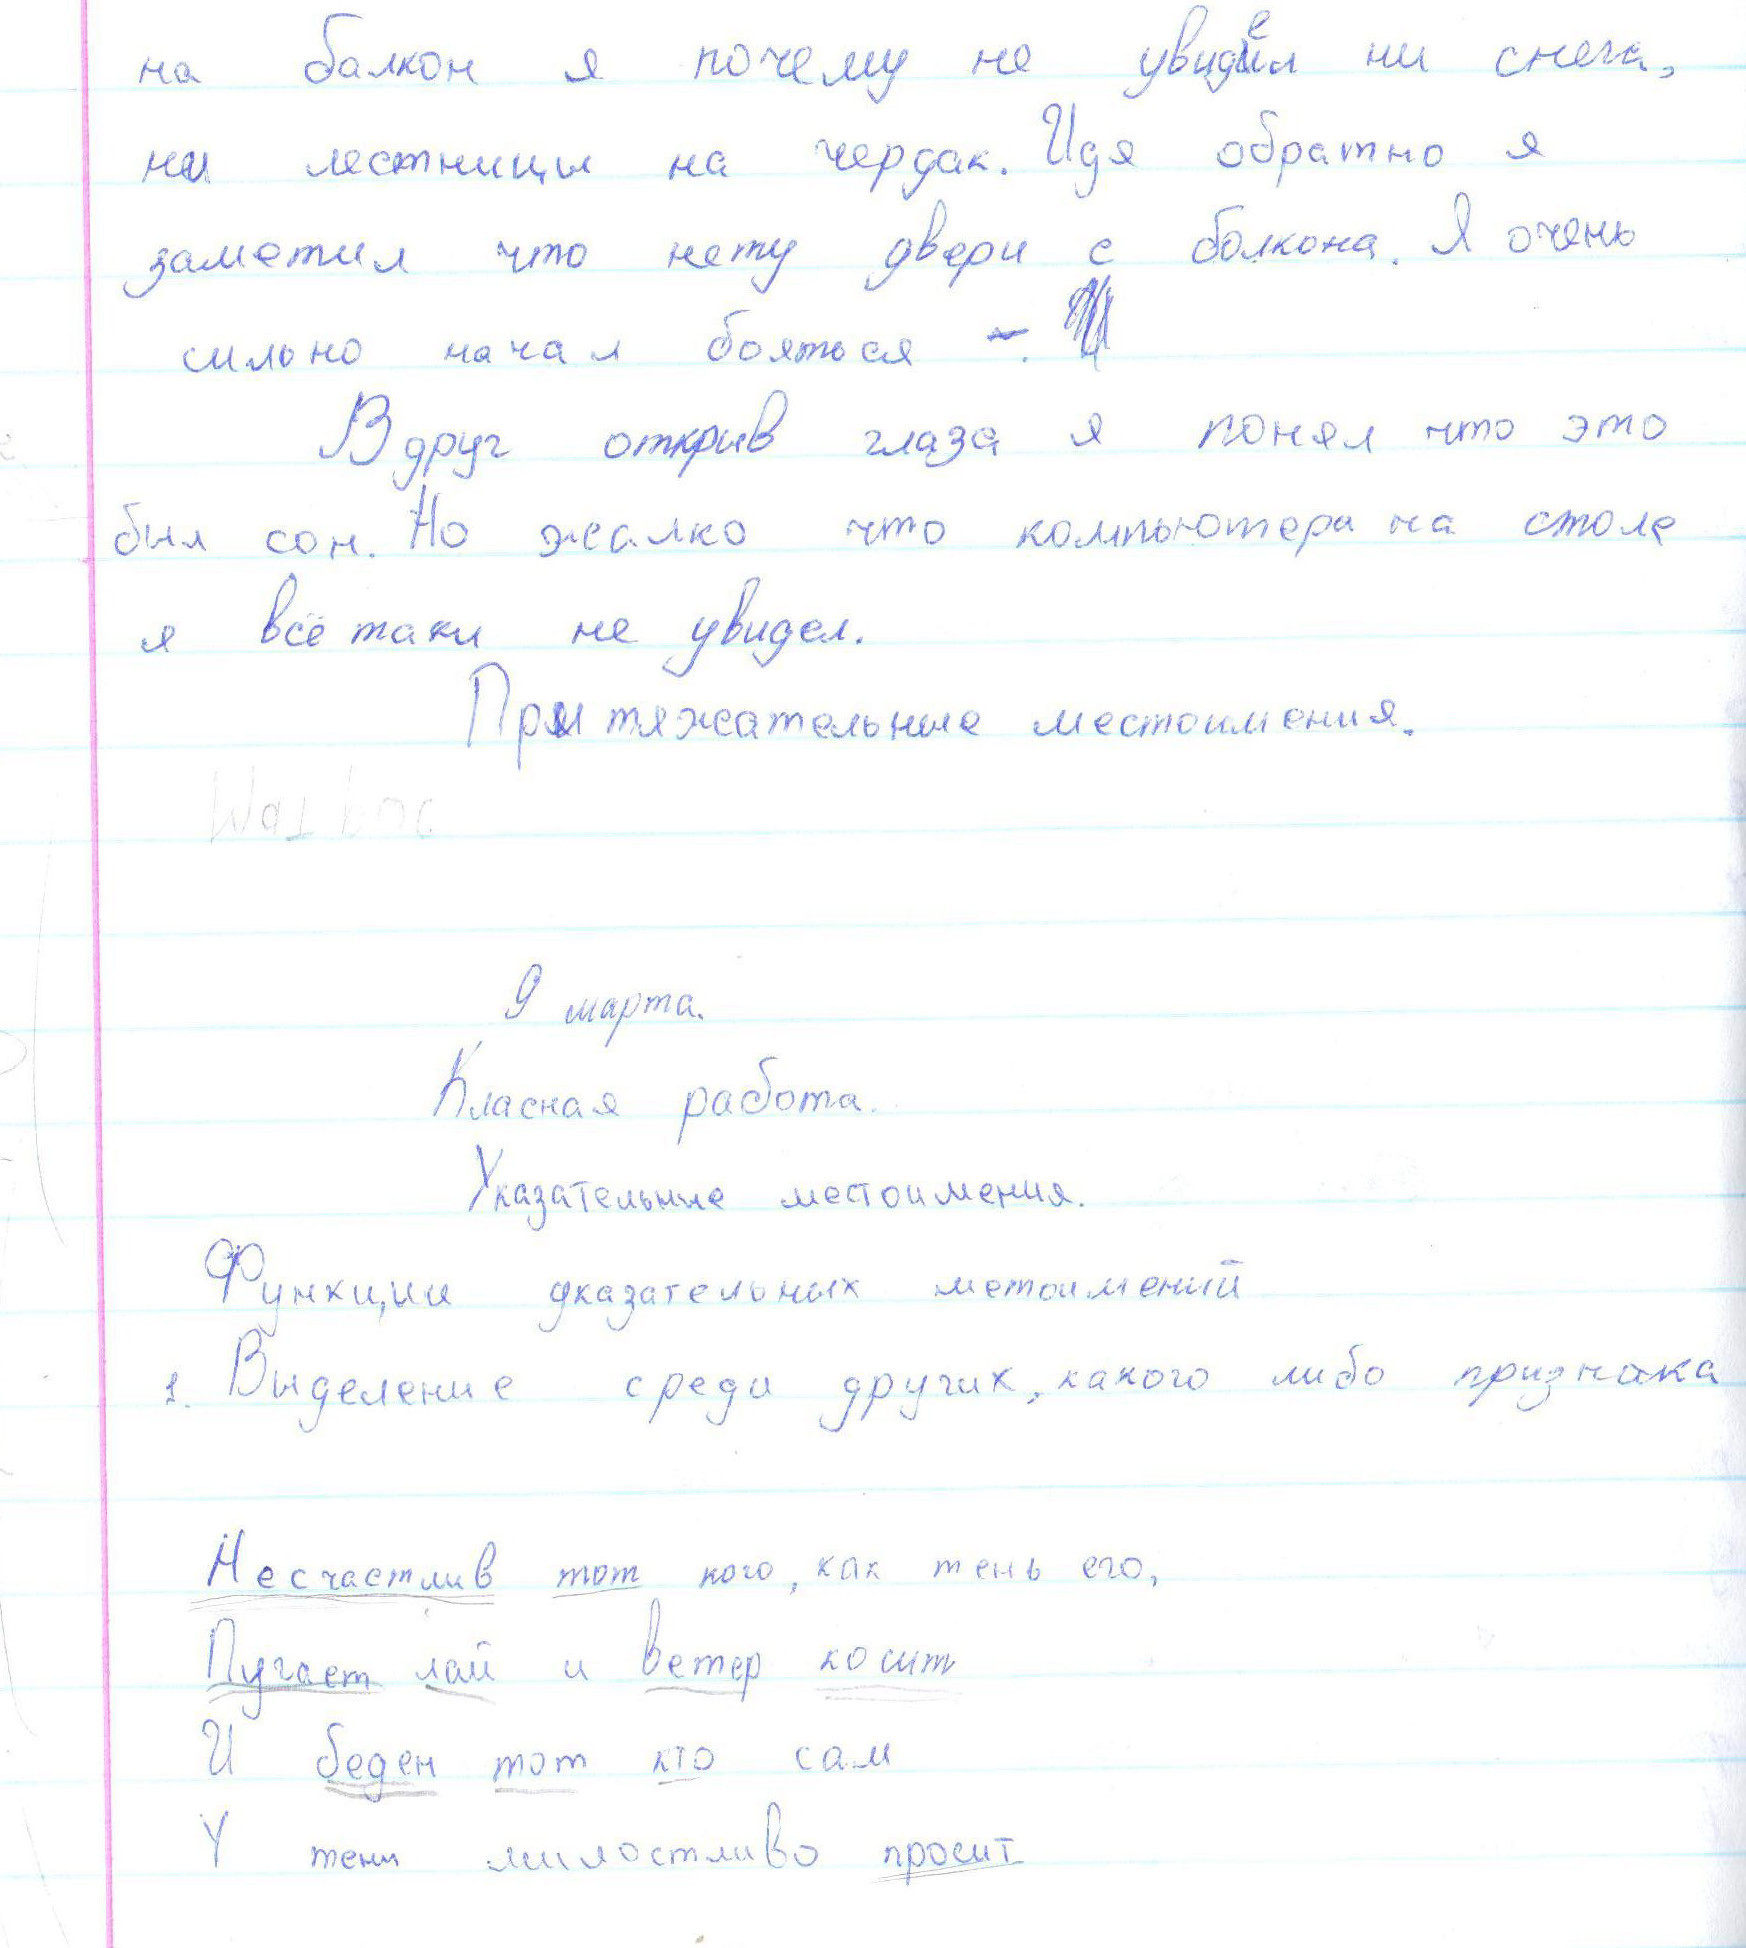 на балкон я почему не увидел ни снега,
ни лестницы на чердак. Идя обратно я
заметил что нету двери с болкона. Я очень
сильно начал бояться.
Вдруг открыв глаза я понял что это
был сон. Но жалко что компьютера на столе
я всё таки не увидел.
Притяжательные местоимения.
9 марта.
Класная работа.
Указательные местоимения.
Функции указательных метоимений
1. Выделение среди других, какого либо признака
Несчастлив тот кого, как тень его,
Пугает лай и ветер косит
И беден тот кто сам
У тени милостливо просит